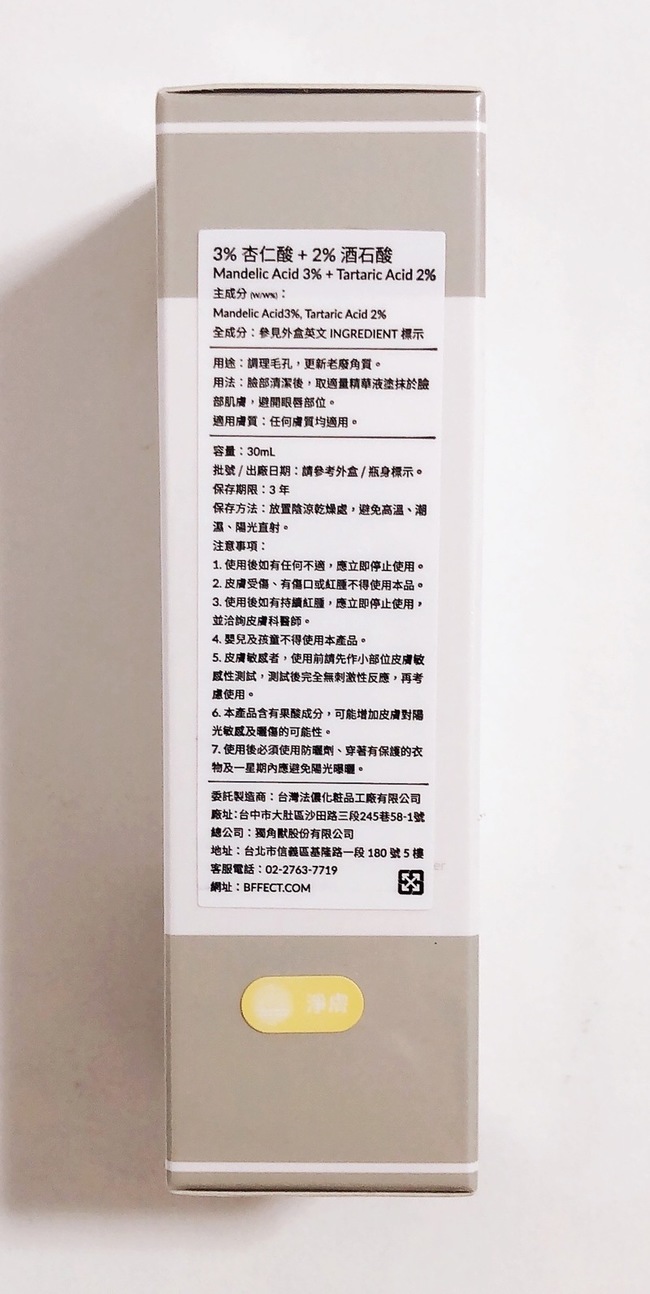 3% 杏仁酸 + 2% 酒石酸
Mandelic Acid 3% + Tartaric Acid 2%
主成分 (W/W%)：
Mandelic Acid3%, Tartaric Acid 2%
全成分：參見外盒英文 INGREDIENT 標示
用途：調理毛孔，更新老廢角質。
用法：臉部清潔後，取適量精華液塗抹於臉
部肌膚，避開眼唇部位。
適用膚質：任何膚質均適用。
容量：30mL
批號 / 出廠日期：請參考外盒 / 瓶身標示。
保存期限：3 年
保存方法：放置陰涼乾燥處，避免高溫、潮
濕、陽光直射。
注意事項：
1. 使用後如有任何不適，應立即停止使用。
2. 皮膚受傷、有傷口或紅腫不得使用本品。
3. 使用後如有持續紅腫，應立即停止使用，
並洽詢皮膚科醫師。
4. 嬰兒及孩童不得使用本產品。
5. 皮膚敏感者，使用前請先作小部位皮膚敏
感性測試，測試後完全無刺激性反應，再考
慮使用。
6. 本產品含有果酸成分，可能增加皮膚對陽
光敏感及曬傷的可能性。
7. 使用後必須使用防曬劑、穿著有保護的衣
物及一星期內應避免陽光曝曬。
委託製造商：台灣法儂化粧品工廠有限公司
廠址:台中市大肚區沙田路三段245巷58-1號
總公司：獨角獸股份有限公司
地址：台北市信義區基隆路一段 180 號 5 樓
客服電話：02-2763-7719
網址：BFFECT.COM
er
淨膚